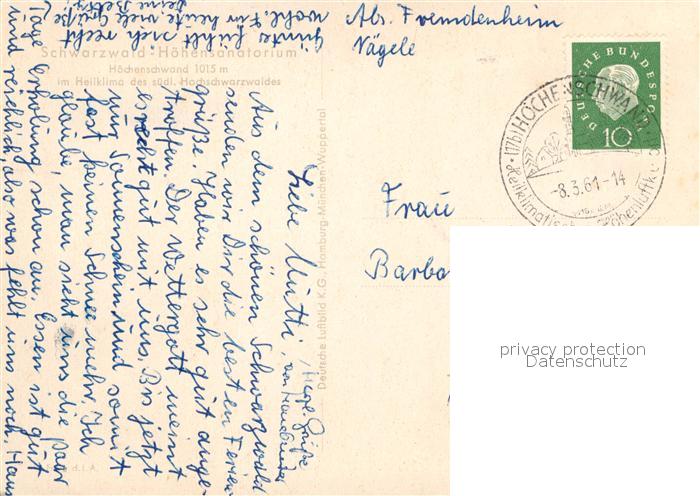 Abs. Fremdenheim
Nägele
Schwarzwald-Höhensanatorium
Höchenschwand 1015 m
im Heilklima des südl. Hochschwarzwaldes
Deutsche Luftbild K.G., Hamburg-München-Wuppertal
DEUTSCHE BUNDESPO
10
(17b) HÖCHENSCHWAND
-8.3.61-14
Heilklimatisch
Höhenluftku
Frau
Barba
privacy protection
Datenschutz
Liebe Mutti,
Aus dem schönen Schwarzwald
senden wir Dir die besten Ferien-
grüße. Haben es sehr gut ange-
troffen. Der Wettergott meint
es recht gut mit uns. Bis jetzt
nur Sonnenschein und somit
fast keinen Schnee mehr. Ich
glaube, man sieht uns die paar
Tage Erholung schon an. Essen ist gut
und reichlich, also was fehlt uns noch.
Günter fühlt sich recht
wohl. Für heute viele Grüße
Deine